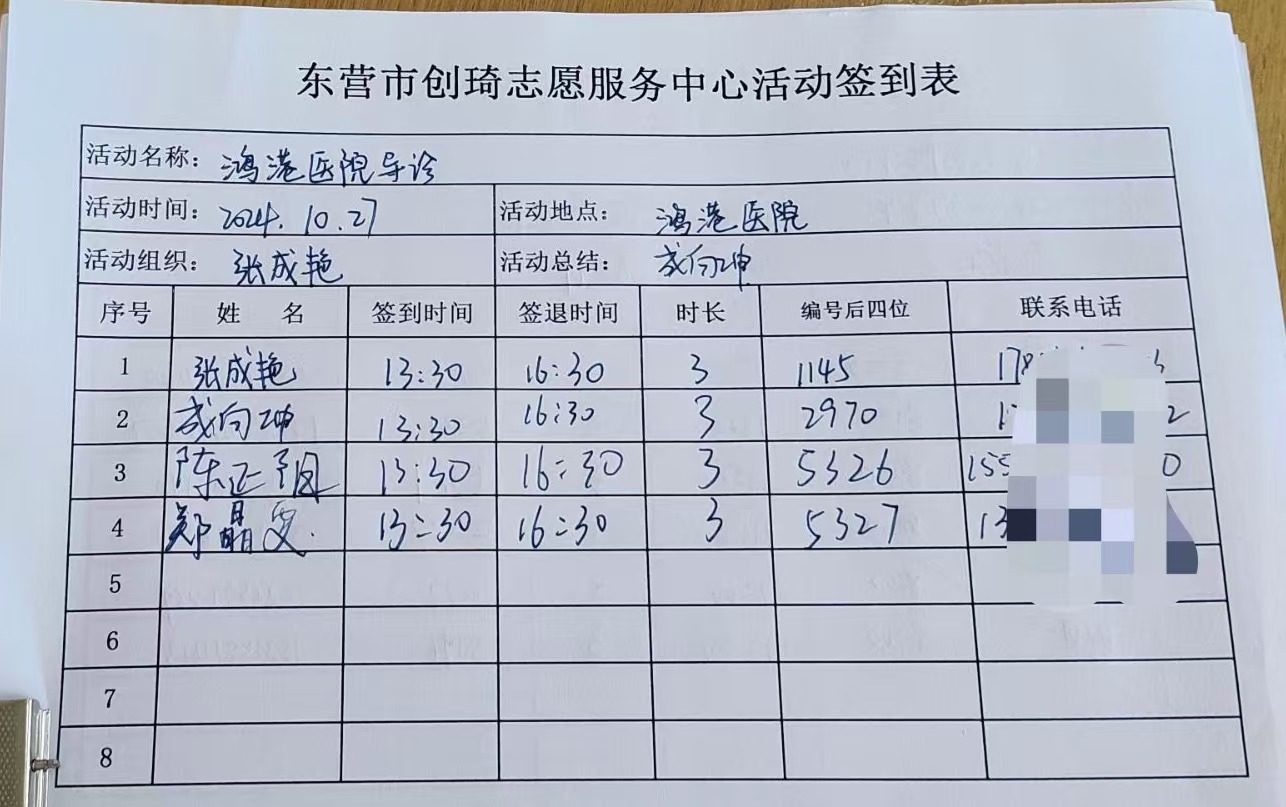 东营市创琦志愿服务中心活动签到表
活动名称：鸿港医院导诊
活动时间：2024.10.27 活动地点：鸿港医院
活动组织：张成艳 活动总结：成向坤
序号 姓 名 签到时间 签退时间 时长 编号后四位 联系电话
1 张成艳 13:30 16:30 3 1145
2 成向坤 13:30 16:30 3 2970
3 陈正 13:30 16:30 3 5326
4 郑晶 13:30 16:30 3 5327
5
6
7
8